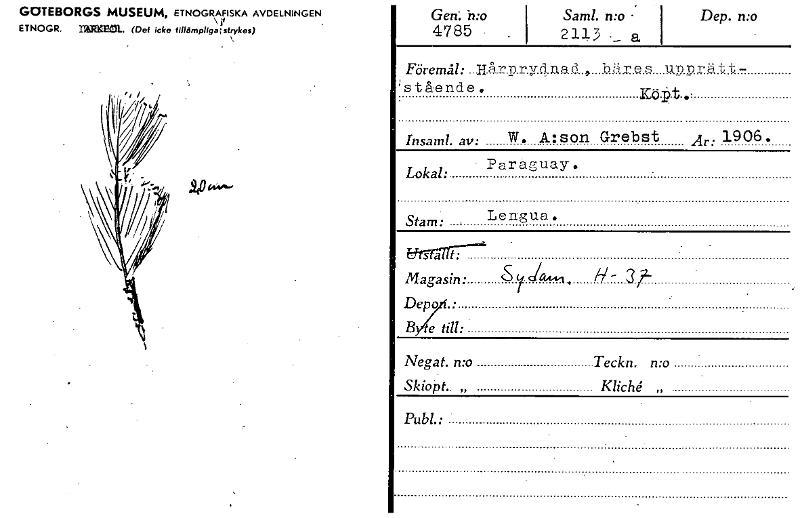 GÖTEBORGS MUSEUM, ETNOGRAFISKA AVDELNINGEN
ETNOGR. ARKEOL. (Det icke tillämpliga strykes)
20 cm
Gen. n:o Saml. n:o Dep. n:o
4785 2113 - a
Föremål: Hårprydnad, bäres upprätt-
stående. Köpt.
Insaml. av: W. A:son Grebst År: 1906.
Lokal: Paraguay.
Stam: Lengua.
Utställt:
Magasin: Sydam. H-37
Depon.:
Byte till:
Negat. n:o Teckn. n:o
Skiopt. „ Kliché „
Publ.: